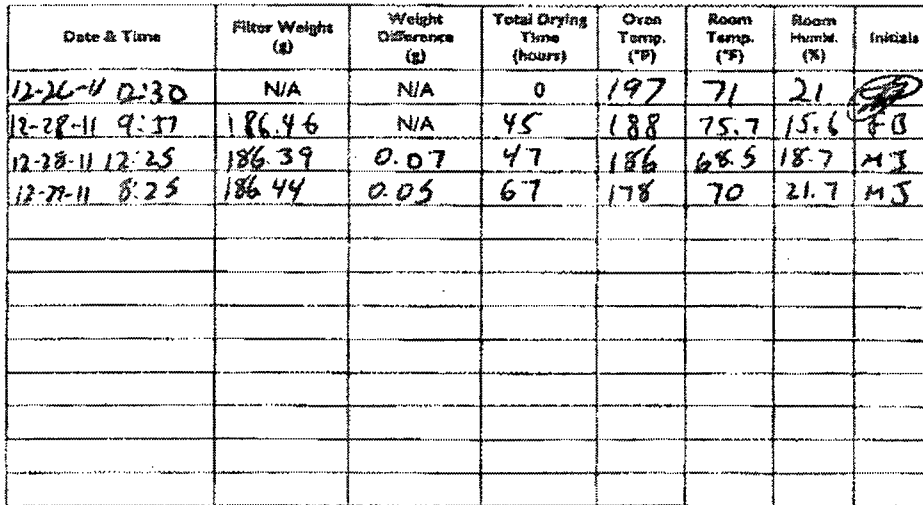 Date & Time Filter Weight (g) Weight Difference (g) Total Drying Time (hours) Oven Temp. (°F) Room Temp. (°F) Room Humid. (%) Initials
12-26-11 N/A N/A 0 197 71 21
12-28-11 9:37 186.46 N/A 45 188 75.7 15.6 FB
12-28-11 12:25 186.39 0.07 47 186 68.5 18.7 MJ
12-29-11 8:25 186.44 0.05 67 178 70 21.7 MJ